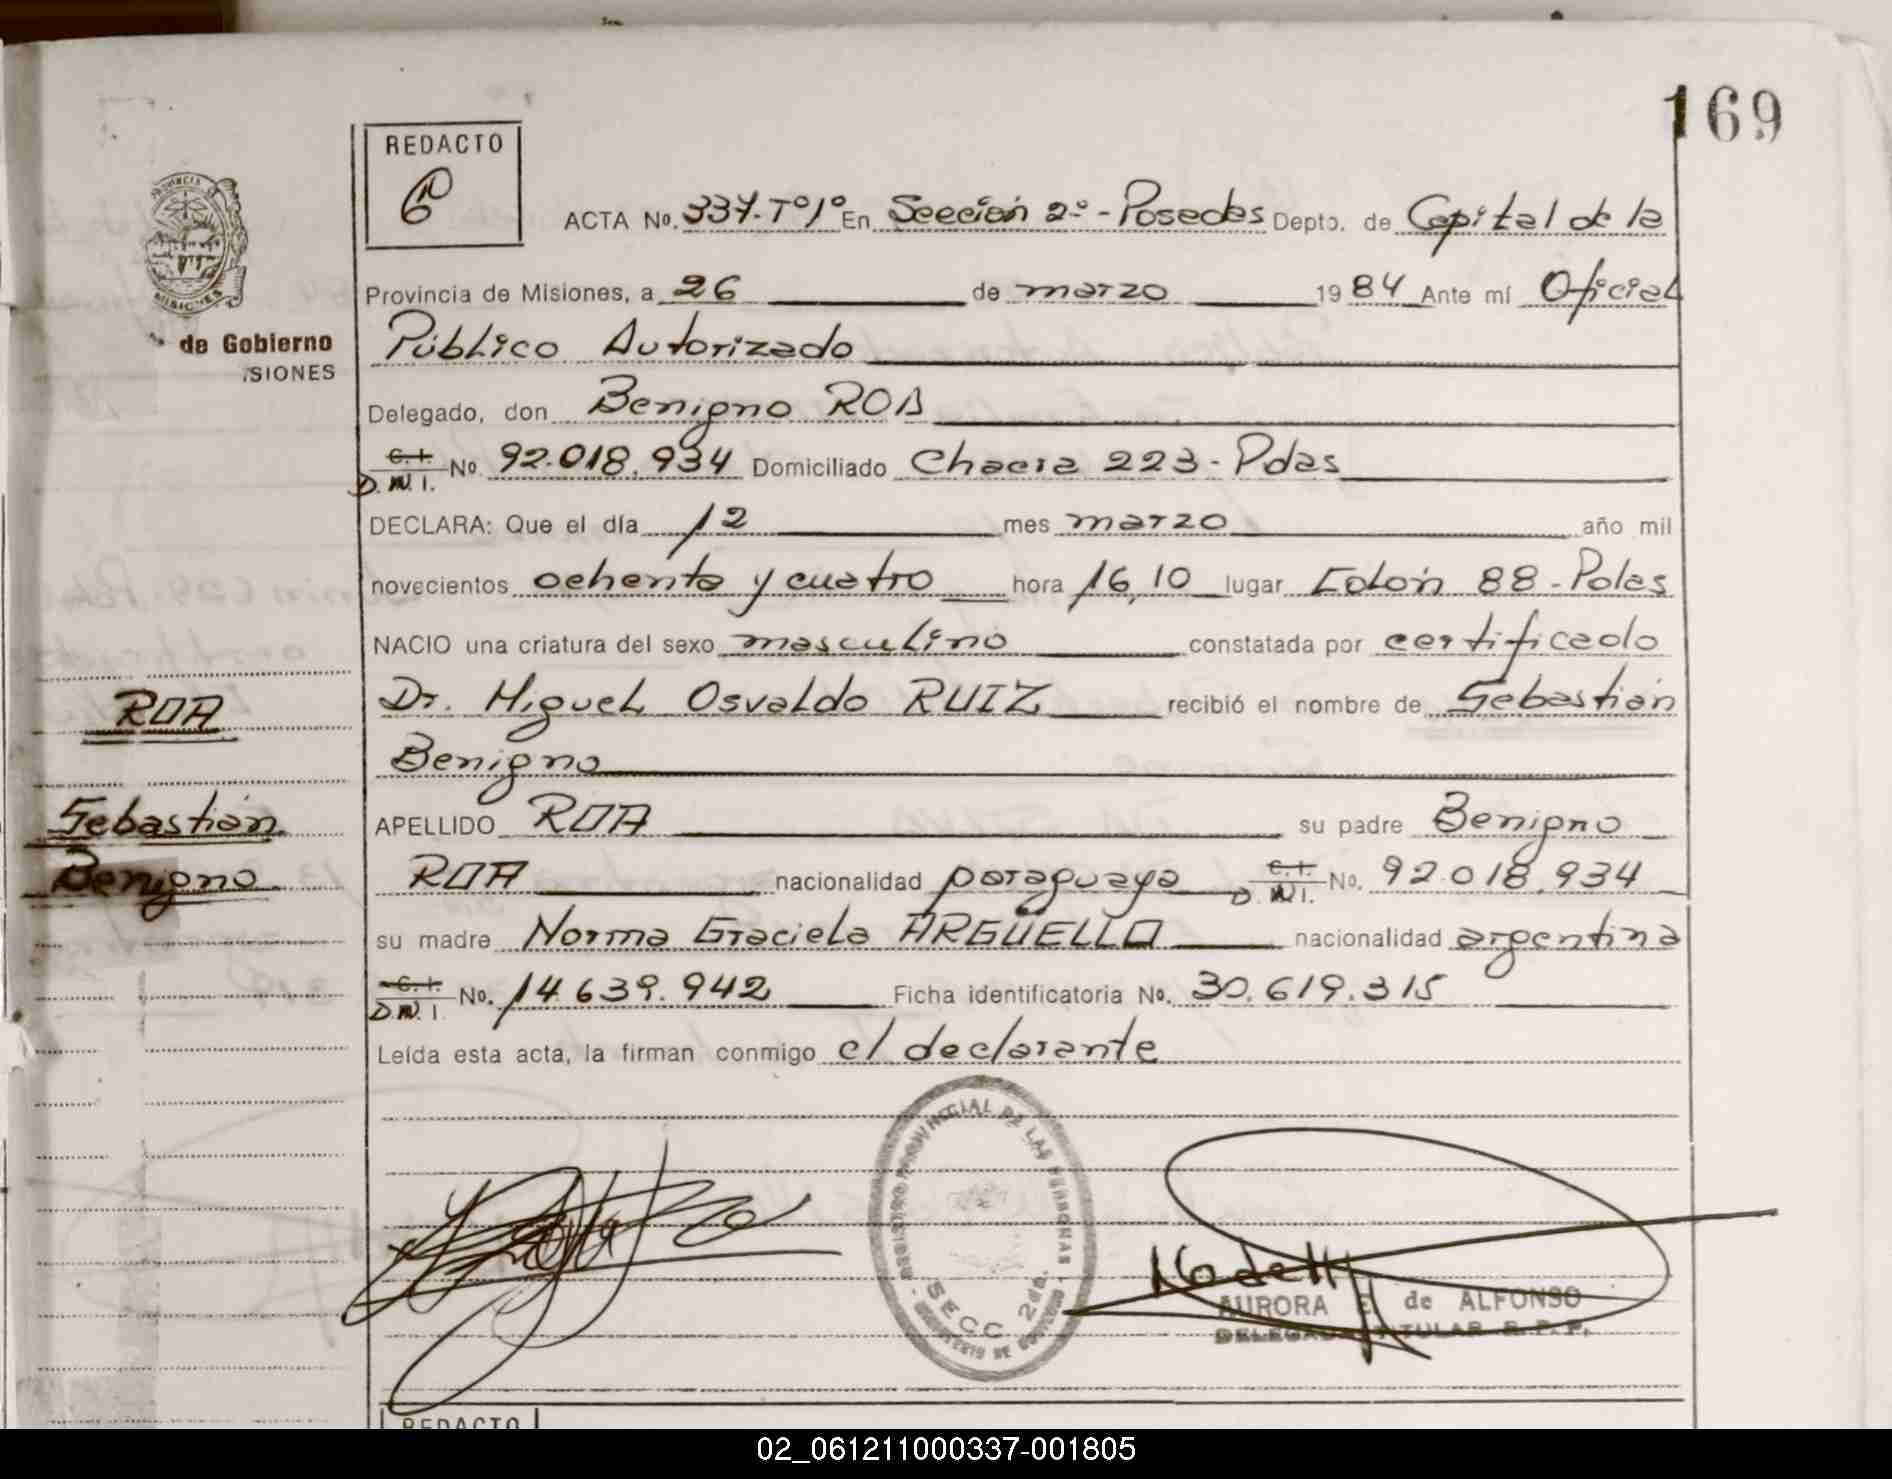 169
REDACTO
ACTA No. 337-Tº1º En Sección 2º - Posadas Depto. de Capital de la
Provincia de Misiones, a 26 de marzo 1984 Ante mí Oficial
de Gobierno
Público Autorizado
SIONES
Delegado, don Benigno ROA
C.I. D.N.I. No 92.018.934 Domiciliado Chacra 223 - Pdas
DECLARA: Que el día 12 mes marzo año mil
novecientos ochenta y cuatro hora 16,10 lugar Colón 88 - Pdas
NACIO una criatura del sexo masculino constatada por certificado
ROA
Dr. Miguel Osvaldo RUIZ recibió el nombre de Sebastián
Benigno
Sebastián
APELLIDO ROA su padre Benigno
Benigno
ROA nacionalidad paraguaya C.I. D.N.I. No. 92.018.934
su madre Norma Graciela ARGÜELLO nacionalidad argentina
C.I. D.N.I. No. 14.639.942 Ficha identificatoria No. 30.619.315
Leída esta acta, la firman conmigo el declarante
REGISTRO PROVINCIAL DE LAS PERSONAS
SECC 2da.
MINISTERIO DE GOBIERNO
AURORA E. de ALFONSO
DELEGADA TITULAR R.P.P.
REDACTO
02_061211000337-001805